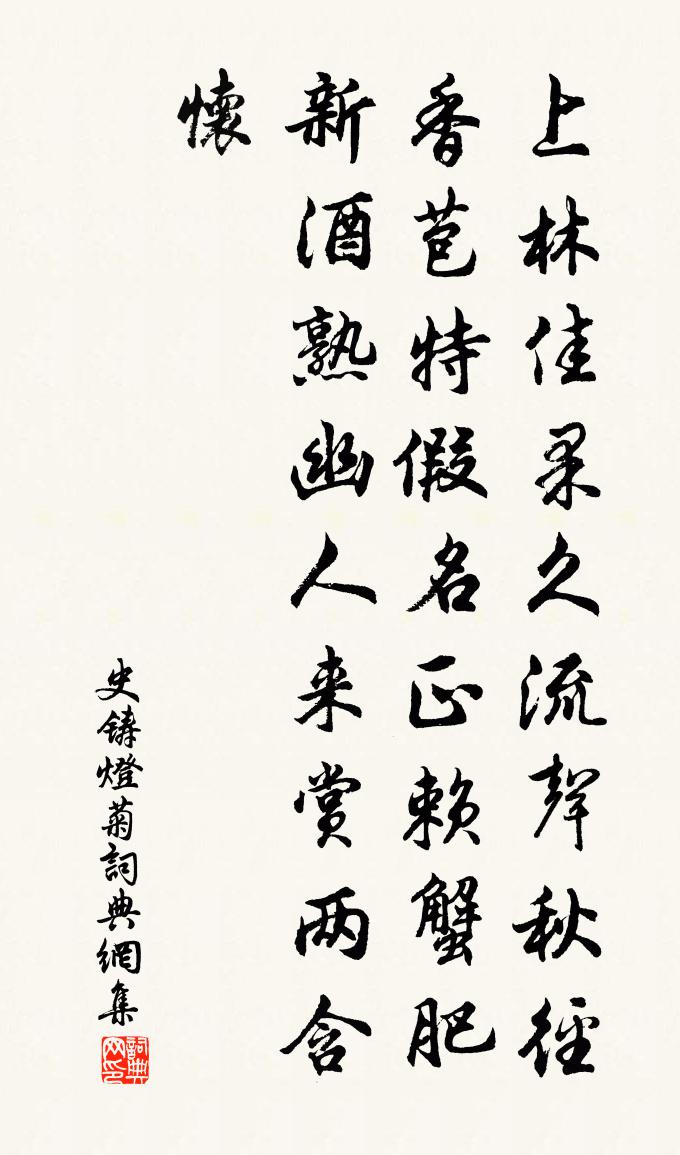 上林佳果久流聲秋徑
香苞特假名正賴蟹肥
新酒熟幽人来賞两含
懷
史鑄燈菊詞典網集
詞典
网印